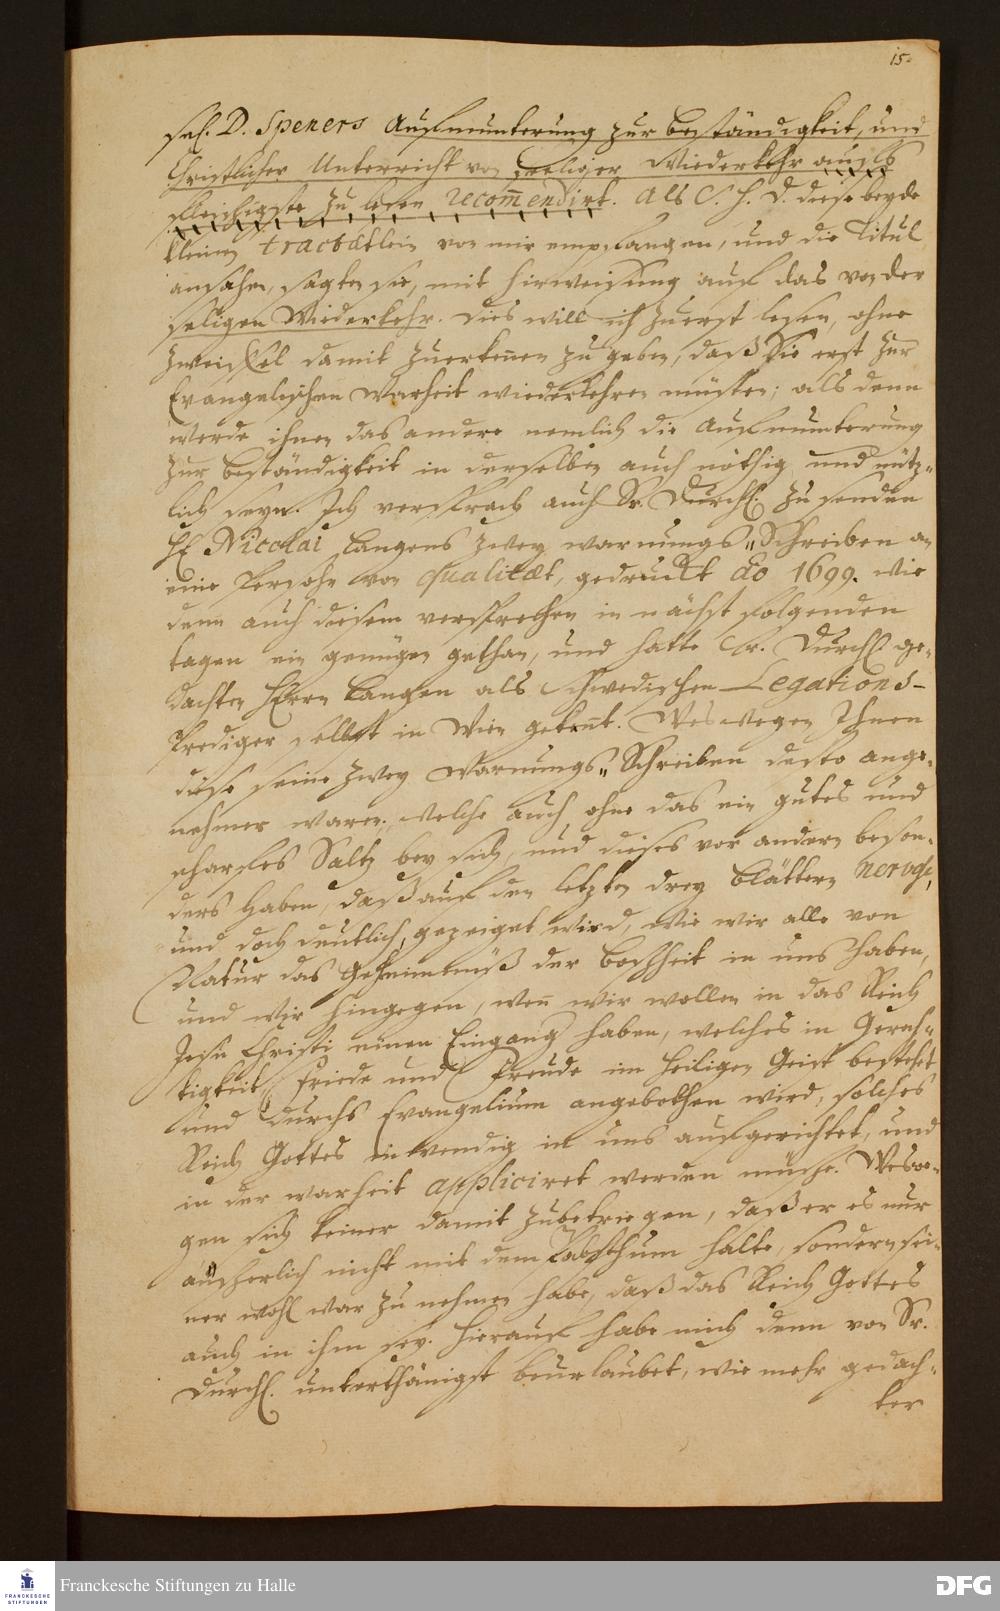 15.
sel. D. Speners Aufmunterung zur beständigkeit, und
Christlicher Unterricht von seeliger Wiederkehr aufs
fleißigste zu lesen recom̄endirt. Als S. H. D. diese beyde
kleine tractätlein von mir empfangen, und die Titul
ansahen, sagten sie, mit hinweisung auf das von der
seligen Wiederkehr. Dies will ich zuerst lesen, ohne
Zweiffel damit zuerken̄en zu geben, daß Sie erst zur
Evangelischen Warheit wiederkehren müsten; als denn
werde ihnen das andere nemlich die Aufmunterung
zur beständigkeit in derselben auch nöthig und nütz-
lich seyn. Ich versprach auch Sr. Durchl. zu senden
H. Nicolai Langens zwey warnungs-Schreiben an
eine Persohn von Qualitæt, gedruckt Ao 1699. wie
denn auch diesem versprechen in nächst folgenden
tagen ein genügen gethan, und hatte Sr. Durchl. ge-
dachten Herrn Langen als Schwedischen Legations-
Prediger selbst in Wien gekan̄t. Weswegen Ihnen
diese seine zwey Warnungs-Schreiben desto ange-
nehmer waren, welche auch ohne das ein gutes und
scharffes Saltz bey sich, und dieses vor andern beson-
ders haben, daß auf den letzten drey blättern nervose,
und doch deutlich, gezeiget wird, wie wir alle von
Natur das Geheimnüß der Boßheit in uns haben,
und wir hingegen, wen̄ wir wollen in das Reich
Jesu Christi einen Eingang haben, welches in Gerech-
tigkeit, Friede und Freude im heiligen Geist bestehet
und durchs Evangelium angebothen wird, solches
Reich Gottes inwendig in uns aufgerichtet, und
in der warheit appliciret werden müsse. Deswe-
gen sich keiner damit zubetriegen, daß er es nur
äuserlich nicht mit dem Pabsthum halte, sondern sei-
ner wohl war zu nehmen habe, daß das Reich Gottes
auch in ihm sey. Hierauf habe mich denn von Sr.
Durchl. unterthänigst beurlaubet, wie mehr gedach-
ter
Franckesche Stiftungen zu Halle
FRANCKESCHE
STIFTUNGEN
DFG